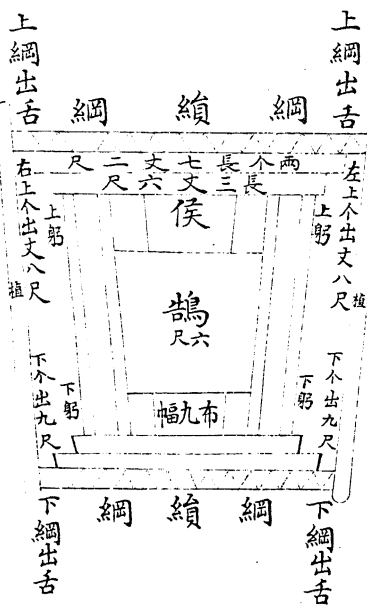 上綱出舌
上綱出舌
綱 縜 綱
兩个長七丈二尺
長三丈六尺
左上个出丈八尺
植
上躬
侯
上躬
右上个出丈八尺
植
鵠
六尺
下个出九尺
下躬
布九幅
下躬
下个出九尺
綱 縜 綱
下綱出舌
下綱出舌